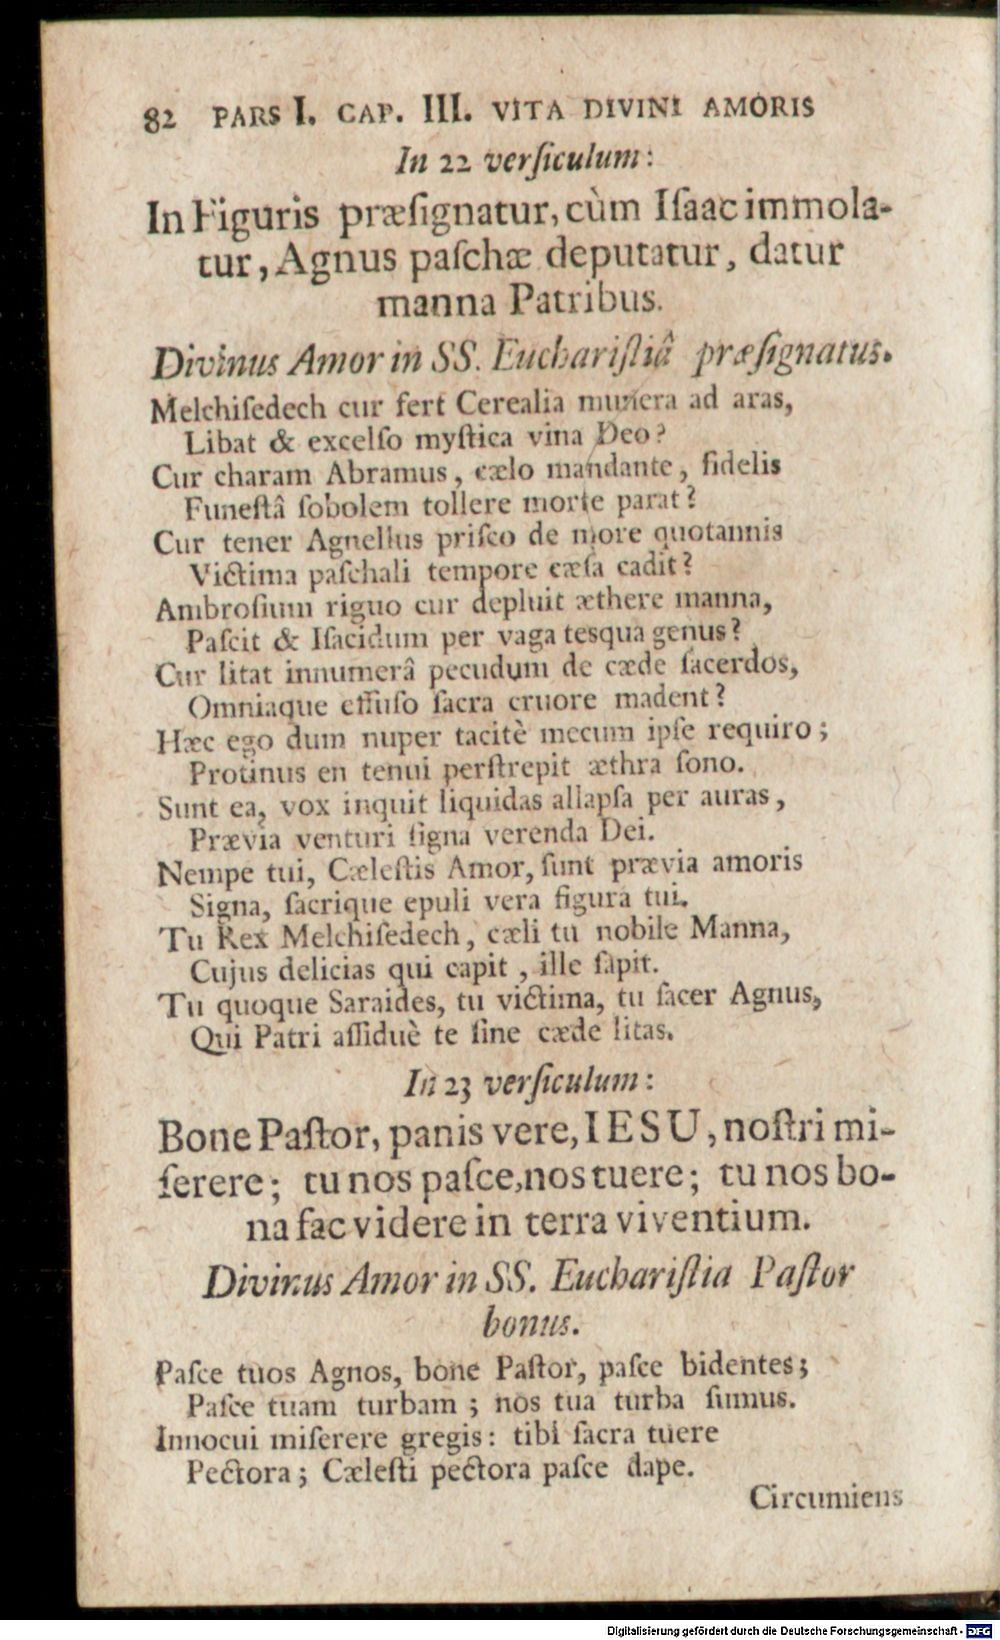 82 PARS I. CAP. III. VITA DIVINI AMORIS
In 22 verſiculum:
In Figuris præſignatur, cùm Iſaac immola-
tur, Agnus paſchæ deputatur, datur
manna Patribus.
Divinus Amor in SS. Euchariſtiâ præſignatus.
Melchiſedech cur fert Cerealia munera ad aras,
Libat & excelſo myſtica vina Deo?
Cur charam Abramus, cælo mandante, fidelis
Funeſtâ ſobolem tollere morte parat?
Cur tener Agnellus priſco de more quotannis
Victima paſchali tempore cæſa cadit?
Ambroſium riguo cur depluit æthere manna,
Paſcit & Iſacidum per vaga teſqua genus?
Cur litat innumerâ pecudum de cæde ſacerdos,
Omniaque effuſo ſacra cruore madent?
Hæc ego dum nuper tacitè mecum ipſe requiro;
Protinus en tenui perſtrepit æthra ſono.
Sunt ea, vox inquit liquidas allapſa per auras,
Prævia venturi ſigna verenda Dei.
Nempe tui, Cæleſtis Amor, ſunt prævia amoris
Signa, ſacrique epuli vera figura tui.
Tu Rex Melchiſedech, cæli tu nobile Manna,
Cujus delicias qui capit, ille ſapit.
Tu quoque Saraides, tu victima, tu ſacer Agnus,
Qui Patri aſſiduè te ſine cæde litas.
In 23 verſiculum:
Bone Paſtor, panis vere, IESU, noſtri mi-
ſerere; tu nos paſce, nos tuere; tu nos bo-
na fac videre in terra viventium.
Divinus Amor in SS. Euchariſtia Paſtor
bonus.
Paſce tuos Agnos, bone Paſtor, paſce bidentes;
Paſce tuam turbam; nos tua turba ſumus.
Innocui miſerere gregis: tibi ſacra tuere
Pectora; Cæleſti pectora paſce dape.
Circumiens
Digitalisierung gefördert durch die Deutsche Forschungsgemeinschaft - DFG